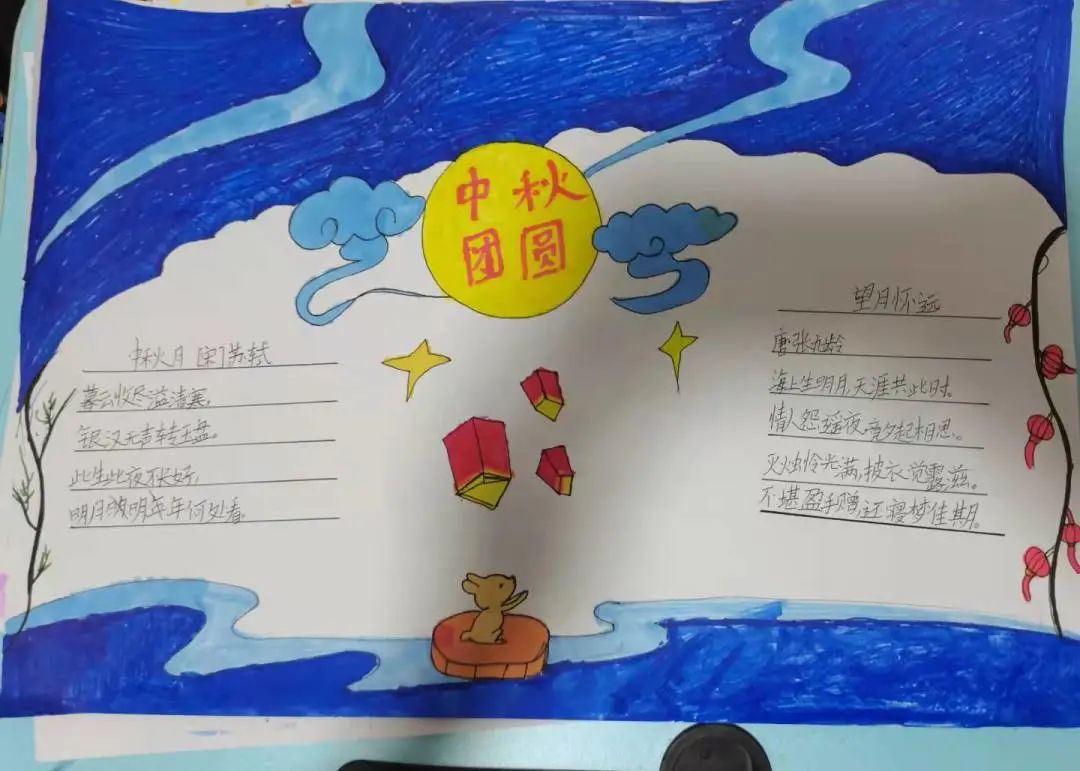 中秋
团圆
中秋月 [宋]苏轼
暮云收尽溢清寒,
银汉无声转玉盘。
此生此夜不长好,
明月明年何处看。
望月怀远
唐张九龄
海上生明月,天涯共此时。
情人怨遥夜,竟夕起相思。
灭烛怜光满,披衣觉露滋。
不堪盈手赠,还寝梦佳期。